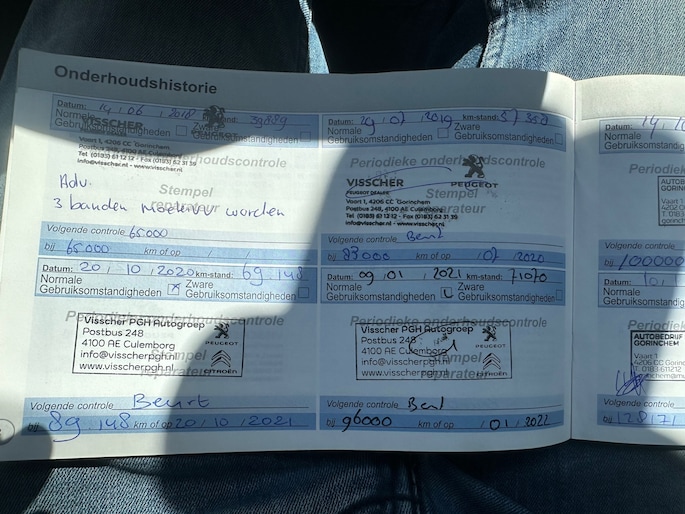 Onderhoudshistorie
Datum: 14 , 06 , 2018 km-stand: 39889
Normale
Gebruiksomstandigheden
Zware
Gebruiksomstandigheden
VISSCHER
PEUGEOT
Voort 1, 4206 CC Gorinchem
Postbus 248, 4100 AE Culemborg
Tel (0183) 61 12 12 - Fax (0183) 62 31 39
info@visscher.nl - www.visscher.nl
Periodieke onderhoudscontrole
Stempel
reparateur
Adv.
3 banden worden
Volgende controle 65000
bij 65000 km of op
Datum: 29 , 07 , 2019 km-stand:
Normale
Gebruiksomstandigheden
Zware
Gebruiksomstandigheden
Periodieke onderhoudscontrole
VISSCHER
PEUGEOT DEALER
PEUGEOT
Stempel
reparateur
Voort 1, 4206 CC Gorinchem
Postbus 248, 4100 AE Culemborg
Tel (0183) 61 12 12 - Fax (0183) 62 31 39
Volgende controle Beurt
bij 83000 km of op 07 2020
Datum: 20 , 10 , 2020 km-stand: 69.148
Normale
Gebruiksomstandigheden
Zware
Gebruiksomstandigheden
Periodieke onderhoudscontrole
Visscher PGH Autogroep
Postbus 248
4100 AE Culemborg
info@visscherpgh.nl
www.visscherpgh.nl
PEUGEOT
CITROËN
Stempel
reparateur
Volgende controle Beurt
bij 89.148 km of op 20 , 10 , 2021
Datum: 09 , 01 , 2021 km-stand: 71070
Normale
Gebruiksomstandigheden
Zware
Gebruiksomstandigheden
Periodieke onderhoudscontrole
Visscher PGH Autogroep
Postbus 248
4100 AE Culemborg
info@visscherpgh.nl
www.visscherpgh.nl
PEUGEOT
CITROËN
Stempel
reparateur
Volgende controle Beurt
bij 96000 km of op / 01 , 2022
Datum: 14
Normale
Gebruiksomstandigheden
AUTOB
GORINC
Vaart 1
4206 CC
Volgende controle
bij 100000
Datum: 10
Normale
Gebruiksomstandigheden
AUTOBEDRIJF
GORINCHEM
Vaart 1
4206 CC Gorin
Volgende controle
bij